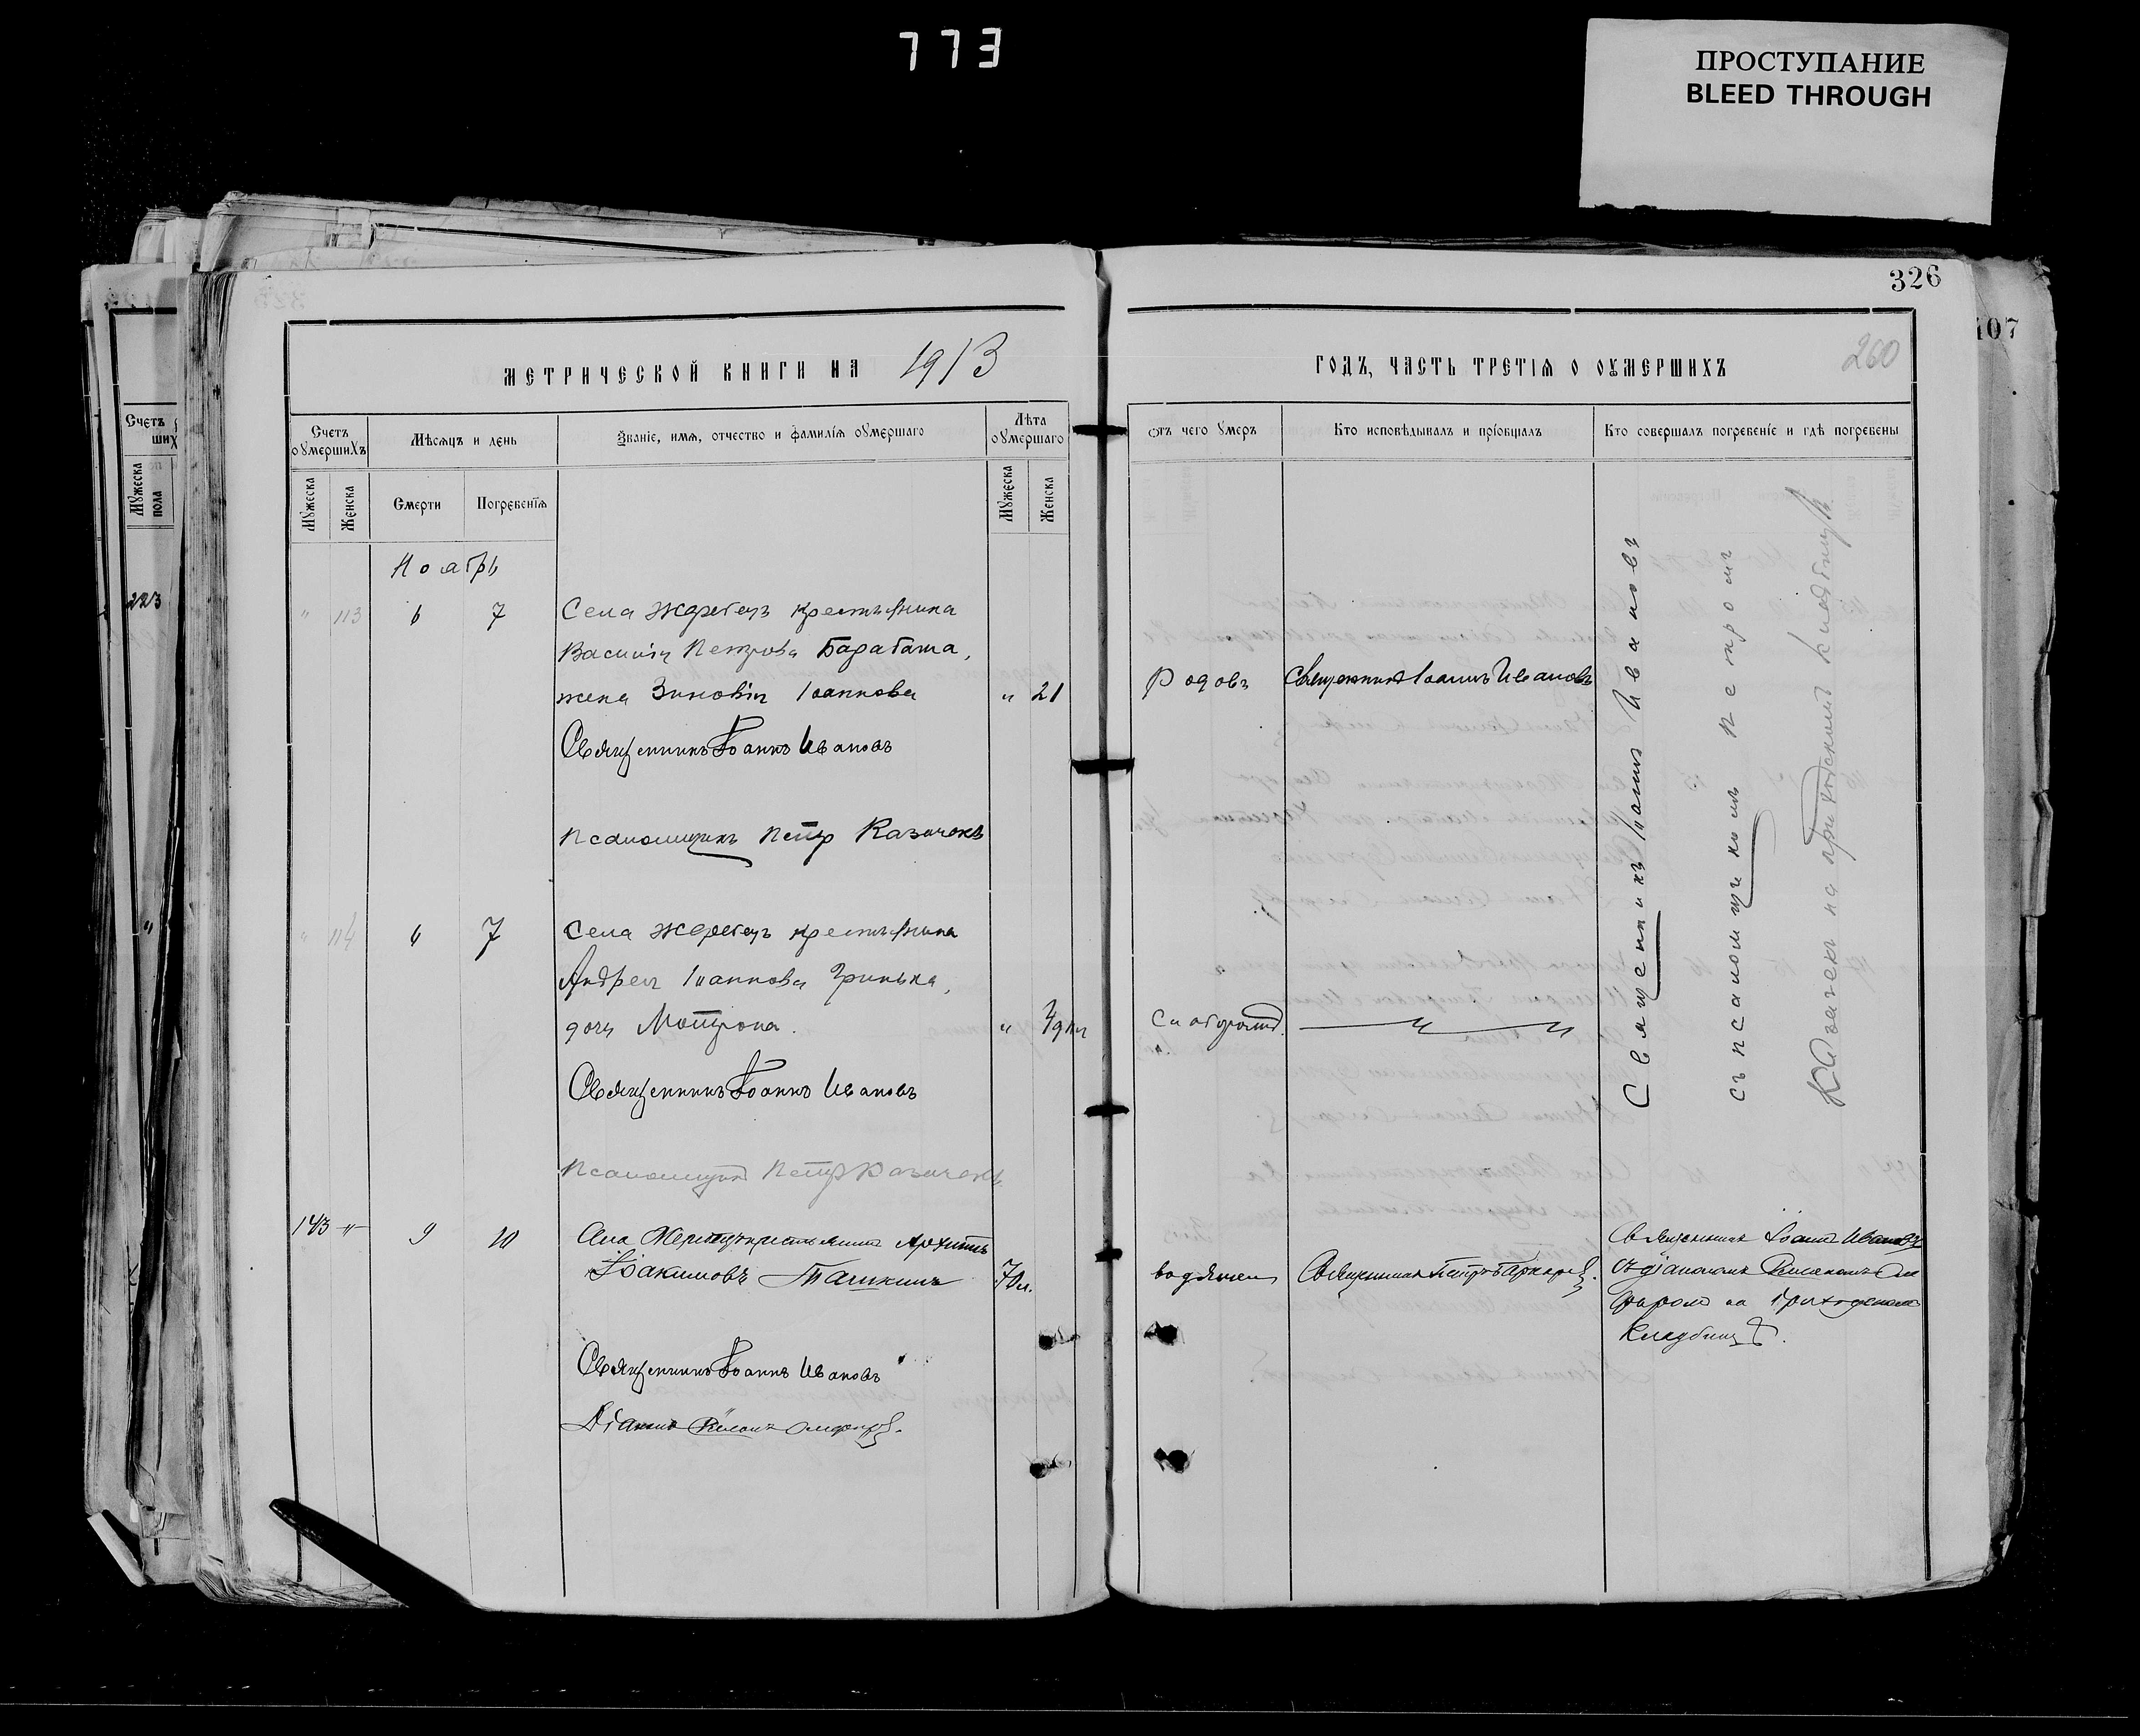 773
ПРОСТУПАНИЕ
BLEED THROUGH
326
107
МЕТРИЧЕСКОЙ КНИГИ НА 1913
ГОДЪ, ЧАСТЬ ТРЕТІЯ О ОУМЕРШИХЪ
260
Счетъ
ших
Мужеска
пола
223
Счетъ
оумершихъ
Мѣсяцъ и день
Званіе, имя, отчество и фамилія оумершаго
Лѣта
оумершаго
Мужеска
Женска
Смерти
Погребенія
Мужеска
Женска
отъ чего умеръ
Кто исповѣдывалъ и пріобщалъ
Кто совершалъ погребеніе и гдѣ погребены
Ноябрь
" 113 6 7 Села Жеребецъ крестьянина
Василія Петрова Барабаша,
жена Зиновія Іоаннова " 21 Родовъ Священникъ Іоаннъ Ивановъ
Священникъ Іоаннъ Ивановъ
Псаломщикъ Петръ Казачекъ
" 114 6 7 Села Жеребецъ крестьянина
Андрея Іоаннова Гринька,
дочь Мотрона. "
Священникъ Іоаннъ Ивановъ
Псаломщикъ Петръ Казачекъ
Священникъ Іоаннъ Ивановъ
съ псаломщикомъ Петромъ
Казачекъ на приходскомъ кладбищѣ
143 " 9 10 Села Жеребецъ крестьянинъ Архипъ
Іоакимовъ Ташкинъ 70 л. водянки Священникъ Петръ
Священникъ Іоаннъ Ивановъ
Діаконъ
Священникъ Іоаннъ Ивановъ
съ діакономъ
на приходскомъ
кладбищѣ.